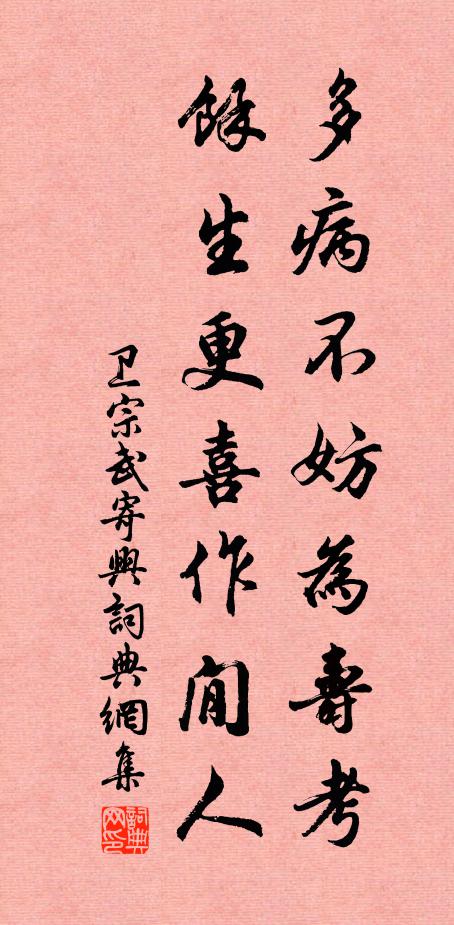 多病不妨為壽考
餘生更喜作閒人
卫宗武寄興詞典網集
詞典网印